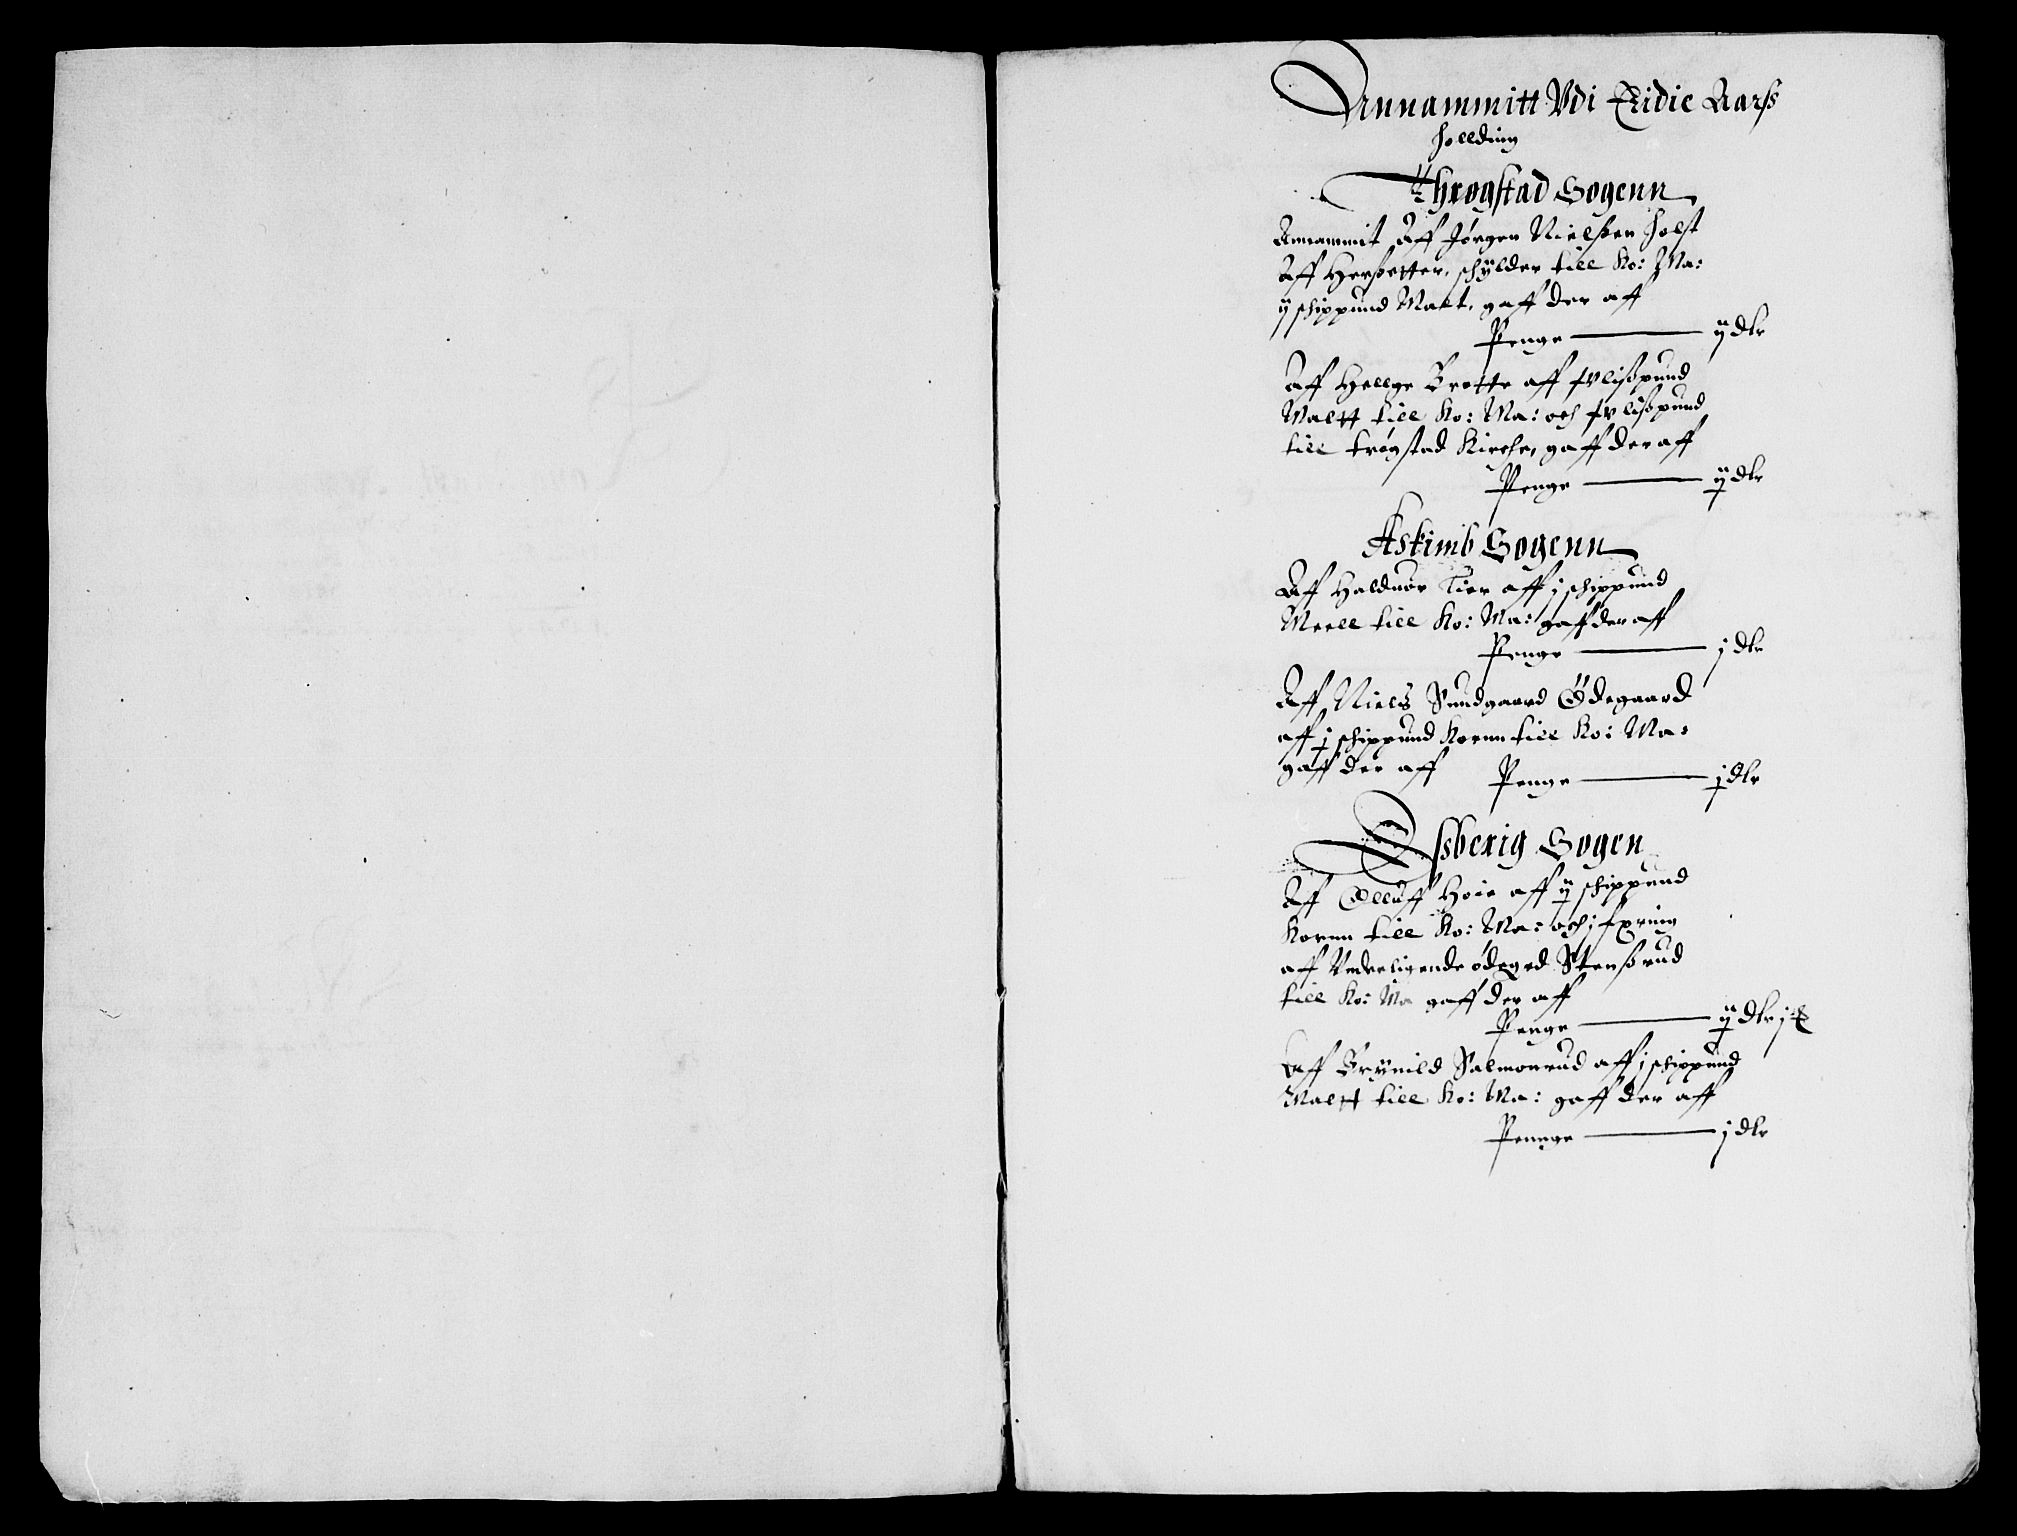 Annammitt Vdi Tridie Aarß
holding
Throgstad Sogenn
Annammit Aff Jørgen Nielßen Holst
Aff Herßetter, schÿlder till Ko: Ma:
ij schippund Malt, gaff der aff
Penge ij dlr
Aff Hellge Brotte aff fv lißpund
Maltt till Ko: Ma: och fv lißpund
till trøgstad Kirche, gaff der aff
Penge ij dlr
Askimb Sogenn
Aff Halduor Tier aff j schippund
Meell till Ko: Ma: gaff der aff
Penge j dlr
Aff Niels Sundgaard Ødegaard
aff j schippund Kornn till Ko: Ma:
gaff der aff Penge j dlr
Essberig Sogen
Aff Olluff Hoie aff ij schippund
Kornn till Ko: Ma: och j fxring
aff Vnderligende ødegrd Stenßrud
till Ko: Ma gaff der aff
Penge ij dlr j
Aff Brÿnild Salmonrud aff j schippund
Maltt till Ko: Ma: gaff der aff
Pennge j dlr